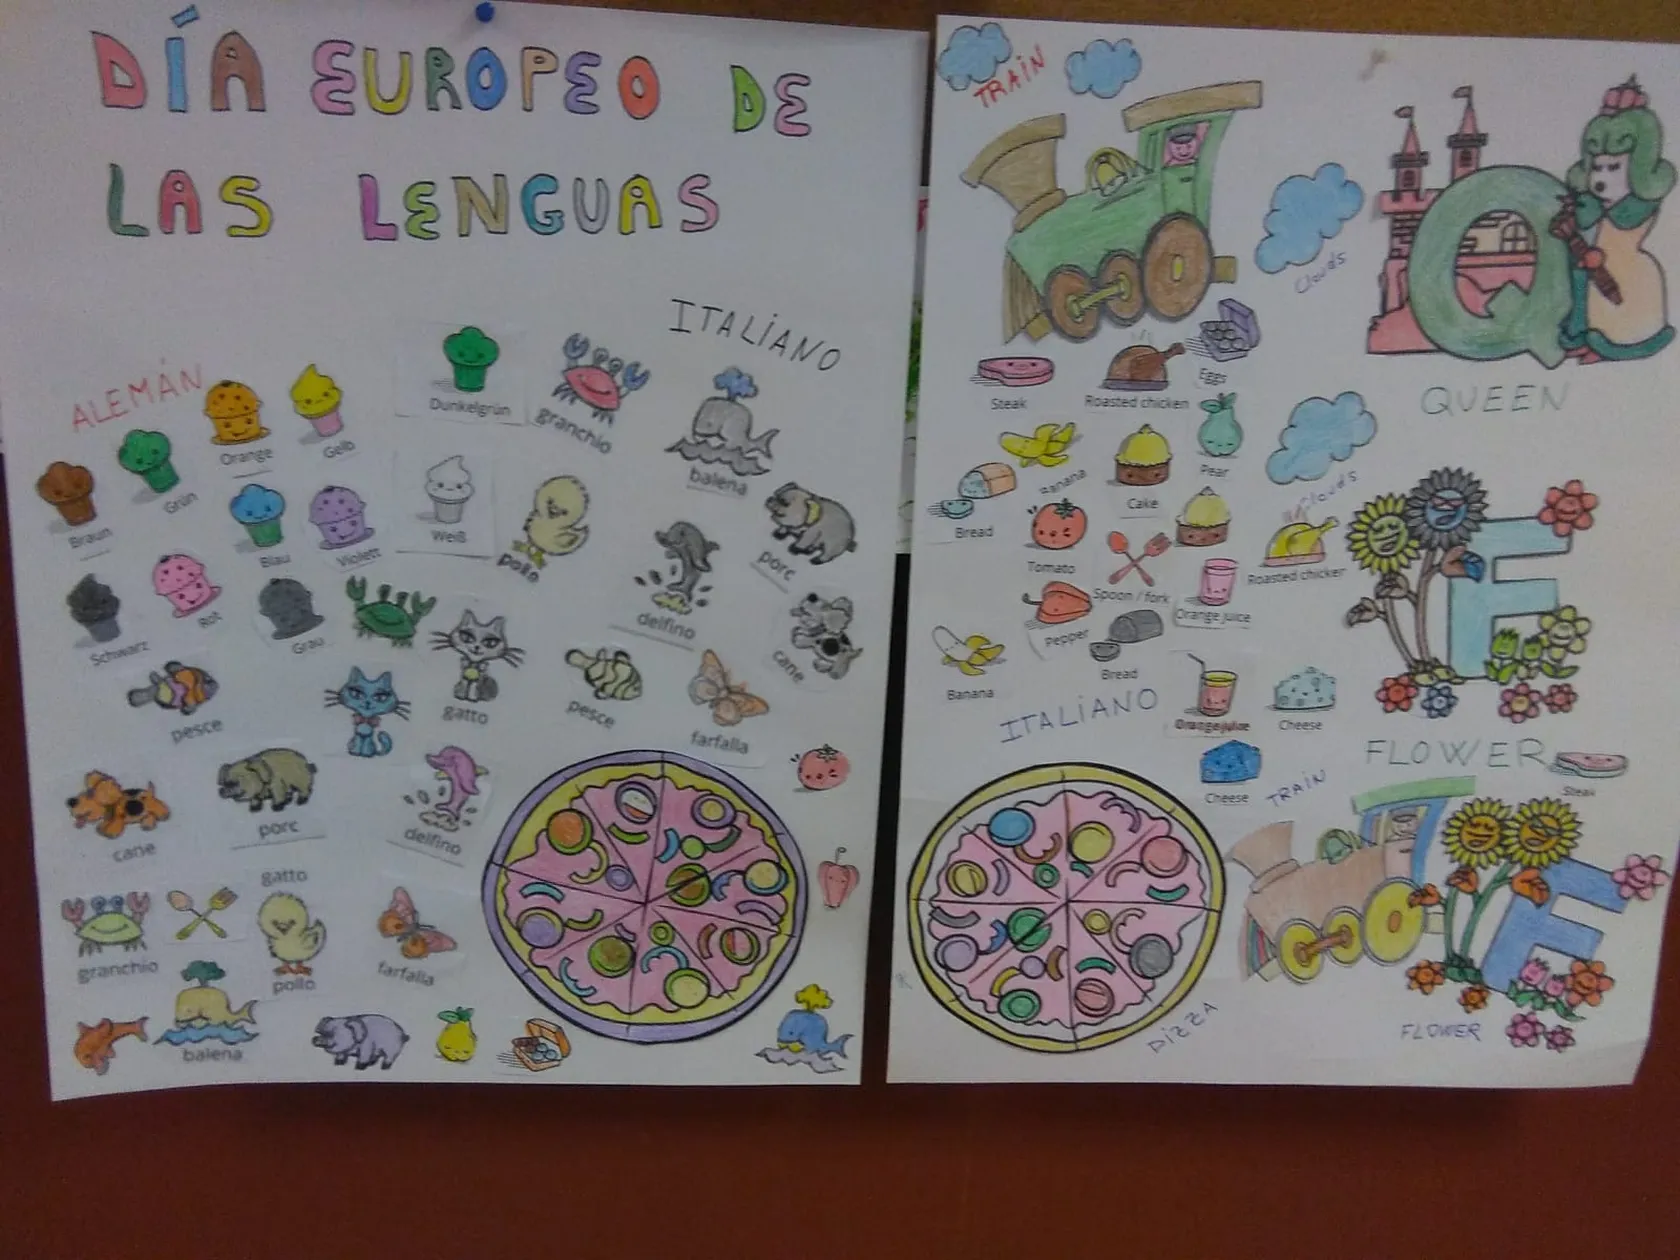 DÍA EUROPEO DE
LAS LENGUAS
ITALIANO
ALEMÁN
Dunkelgrün
granchio
balena
Orange
Gelb
Grün
Braun
Blau
Violett
Weiß
pollo
delfino
porc
cane
Schwarz
Rot
Grau
pesce
gatto
pesce
farfalla
cane
porc
delfino
gatto
granchio
pollo
farfalla
balena
TRAIN
Clouds
QUEEN
Steak
Roasted chicken
Eggs
Banana
Cake
Pear
Clouds
Bread
Tomato
Spoon / fork
Orange juice
Roasted chicken
Pepper
Bread
Banana
ITALIANO
Orange juice
Cheese
FLOWER
Cheese
TRAIN
Steak
PIZZA
FLOWER